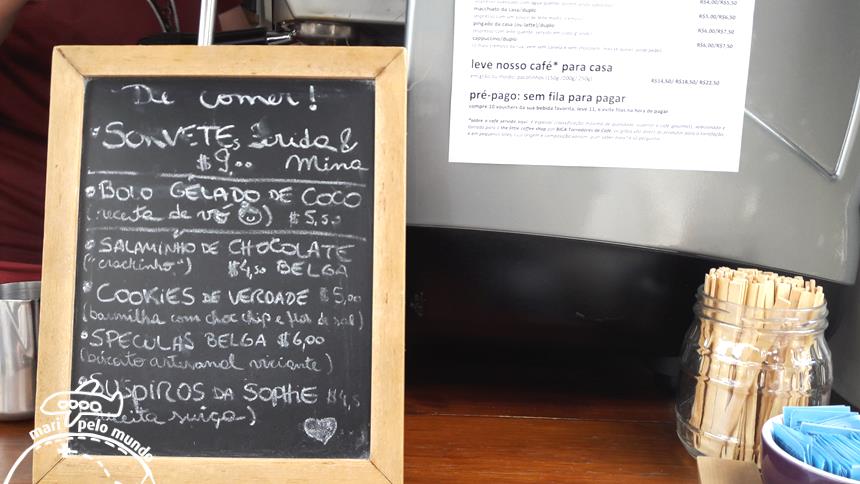 De comer!
• SORVETES Frida &
$9,00 Mina
• BOLO GELADO DE COCO
(receita de vó ) $5,50
• SALAMINHO DE CHOCOLATE
("crackinho") $4,50 BELGA
• COOKIES DE VERDADE $5,00
(baunilha com choc chip e flor de sal)
• SPECULAS BELGA $6,00
(biscoito artesanal viciante)
• SUSPIROS DA SOPHIE $4,5
(receita suíça)
R$4,00/R$5,50
macchiato da casa/duplo
espresso com um pouco de leite
R$5,00/R$6,50
pingado da casa (ou latte)/duplo
R$6,00/R$7,50
cappuccino/duplo
R$6,00/R$7,50
leve nosso café* para casa
em grão ou moído: pacotinhos (150g /200g/ 250g)
R$14,50/ R$18,50/ R$22,50
pré-pago: sem fila para pagar
compre 10 vouchers da sua bebida favorita, leve 11, e evite filas na hora de pagar
mari pelo mundo